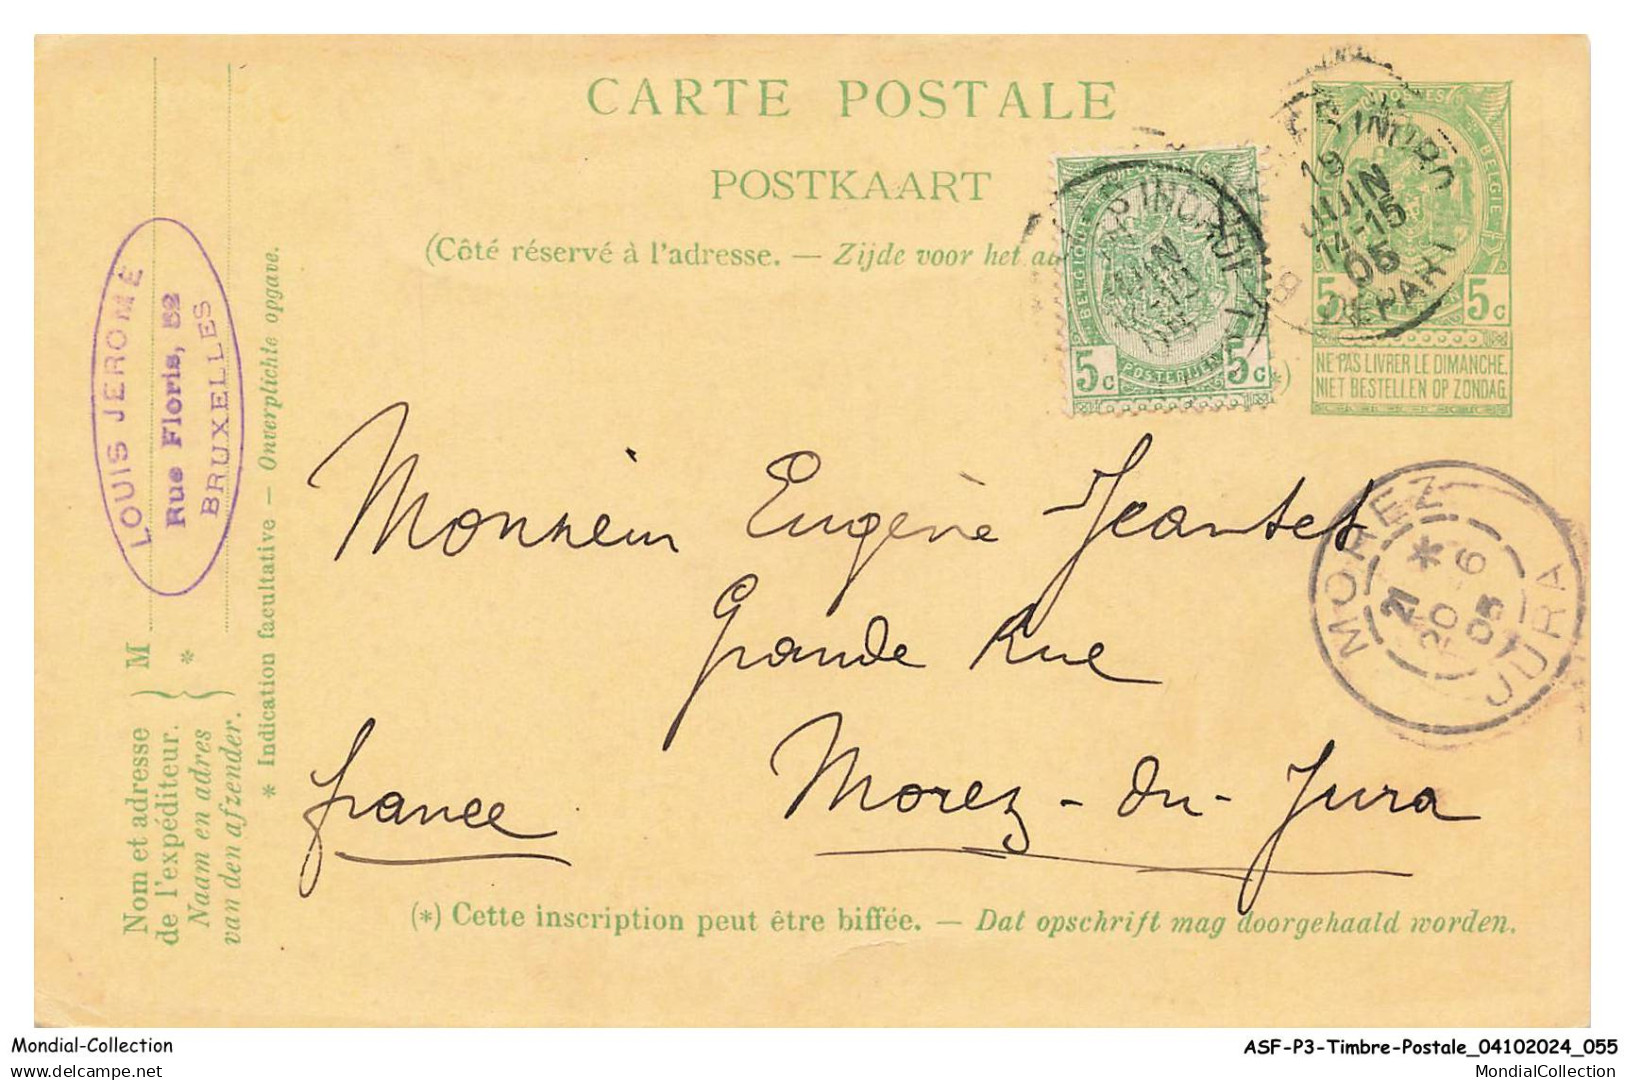 CARTE POSTALE
POSTKAART
(Côté réservé à l'adresse. — Zijde voor het
POSTES
BELGIQUE
BELGIE
5c 5c
POSTERIJEN
5c 5c
NE PAS LIVRER LE DIMANCHE.
NIET BESTELLEN OP ZONDAG.
19
JUIN
14-15
05
DEPART
LOUIS JEROME
Rue Floris, 52
BRUXELLES
Nom et adresse
de l'expéditeur.
Naam en adres
van den afzender.
} M
*
* Indication facultative — Onverplichte opgave.
Monsieur Eugène Jeantet
Grande Rue
Morez-du-Jura
france
MOREZ
*
21
20-6
05
JURA
(*) Cette inscription peut être biffée. — Dat opschrift mag doorgehaald worden.
Mondial-Collection
ASF-P3-Timbre-Postale_04102024_055
delcampe.net
MondialCollection